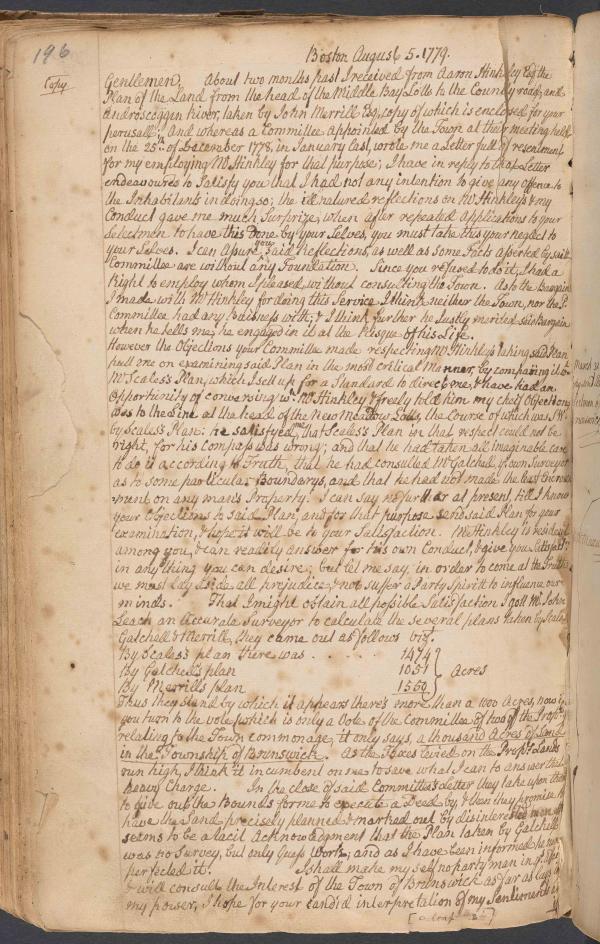 196
Boston August 5. 1779.
Copy
Gentlemen, About two months past I received from Aaron Hinkley Esq the
Plan of the Land from the head of the Middle Bay Lotts to the County road, and
Androscoggen River, taken by John Merrill Esq, copy of which is enclosed for your
perusall. And whereas a Committee appointed by the Town at their meeting held
on the 25th of December 1778, in January last, wrote me a Letter full of resentment
for my employing Mr Hinkley for that purpose; I have in reply to that Letter
endeavoured to Satisfy you that I had not any intention to give any offence to
the Inhabitants in doing so; the ill natured reflections on Mr Hinkley & my
Conduct gave me much Surprize, when after repeated applications to your
Selectmen to have this Done by your Selves, you must take this your neglect to
your Selves. I can assure you said Reflections, as well as some Facts asserted by said
Committee are without any Foundation. Since you refused to do it, I had a
Right to employ whom I pleased without consulting the Town. As to the Bargain
I made with Mr Hinkley for doing this Service I think neither the Town, nor the
Committee had any Buisness with; & I think further he Justly merited said Bargain
when he tells me, he engaged in it at the Risque of his Life.
However the Objections your Committee made respecting Mr Hinkley's taking said Plan
put me on examining said Plan in the most critical Manner, by comparing it to
Mr Scales's Plan, which I sett up for a Standard to direct me, & have had an
Opportunity of conversing wth Mr Hinkley & freely told him my cheif Objections
was to the Line at the head of the New Meadow Lotts, the Course of which was
by Scales's Plan: he satisfyed me that Scales's Plan in that respect could not be
right, for his compass was wrong; and that he had taken all imaginable care
to do it according to Truth, that he had consulted Mr Gatchell, your Surveyor
as to some particular Boundarys, and that he had not made the least encroach-
ment on any man's Property. I can say no further at present, till I know
your Objections to said Plan, and for that purpose send said Plan for your
examination, & hope it will be to your Satisfaction. Mr Hinkley is resident
among you, & can readily answer for his own Conduct, & give you Satisfact:
in any thing you can desire; but let me say, in order to come at the Truth
we must lay aside all prejudice, & not suffer a Party Spiritt to influence our
minds. That I might obtain all possible Satisfaction I gott Mr John
Leach an Accurate Surveyor to calculate the several plans taken by Scales
Gatchell & Merrill, they came out as follows viz.
By Scales's plan there was . . . . . 1474
By Gatchell's plan 1051 Acres
By Merrill's plan 1560
Thus they stand by which it appears there's more than a 1000 Acres, now if
you turn to the vote, which is only a Vote of the Committee of two of the Propts
relating to the Town commonage, it only says, a thousand Acres of Land
in the Township of Brunswick. As the Taxes levied on the Propts Lands
run high, I think it incumbent on me to save what I can to answer that
heavy Charge. In the close of said Committee's Letter they take upon them
to give out the Bounds for me to execute a Deed by, & then they promise to
have the Land precisely planned & marked out by disinterested men
seems to be a tacit Acknowledgment that the Plan taken by Gatchell
was no Survey, but only Guess Work; and as I have been informed he
perfected it. I shall make my self no party man in
& will consult the Interest of the Town of Brunswick as far as lays in
my power, I hope for your candid interpretation of my Sentiments